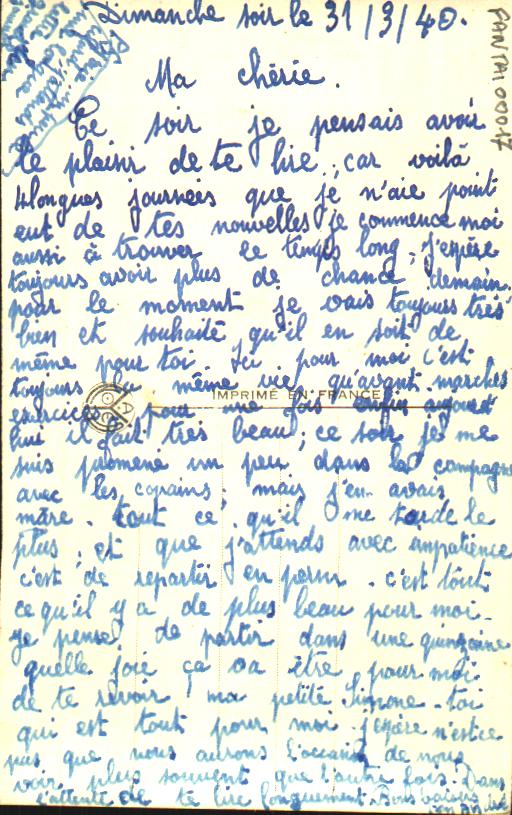 Dimanche soir le 31/3/40.
FANTAI00017
Ma chérie.
Ce soir je pensais avoir
le plaisir de te lire, car voilà
4 longues journées que je n'aie point
eut de tes nouvelles je commence moi
aussi à trouver le temps long, j'espère
toujours avoir plus de chance demain.
pour le moment je vais toujours très
bien et souhaite qu'il en soit de
même pour toi. Ici pour moi c'est
toujours la même vie qu'avant. marches
IMPRIMÉ EN FRANCE
exercices, pour une fois enfin aujourd
hui il fait très beau; ce soir je me
suis promené un peu dans la campagne
avec les copains, mais j'en avais
mare. tout ce qu'il me tarde le
plus, et que j'attends avec impatience
c'est de repartir en perm. c'est tout
ce qu'il y a de plus beau pour moi.
je pense de partir dans une quinzaine
quelle joie ça va être pour moi
de te revoir, ma petite Simone. toi
qui est tout pour moi. j'espère n'est ce
pas que nous aurons l'occasion de nous
voir plus souvent que l'autre fois. Dans
l'attente de te lire longuement. Bons baisers